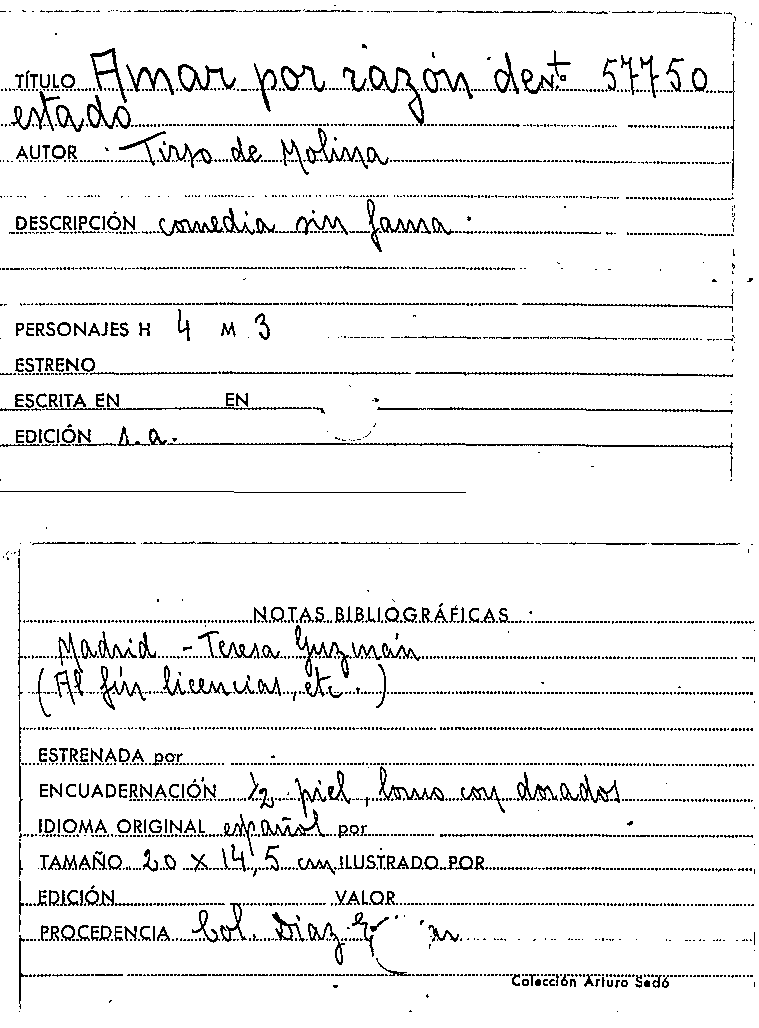 TÍTULO Amar por razón de 57750
estado
AUTOR Tirso de Molina
DESCRIPCIÓN comedia sin fama.
PERSONAJES H 4 M 3
ESTRENO
ESCRITA EN EN
EDICIÓN s.a.
NOTAS BIBLIOGRÁFICAS
Madrid - Teresa Guzmán
(Al fin licencias, etc.)
ESTRENADA por
ENCUADERNACIÓN 1/2 piel, lomo con dorados
IDIOMA ORIGINAL español por
TAMAÑO 20 X 14,5 cm ILUSTRADO POR
EDICIÓN VALOR
PROCEDENCIA Col. Diaz
Colección Arturo Sedó